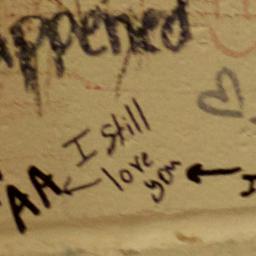 appened
I still
love
you
AA
I